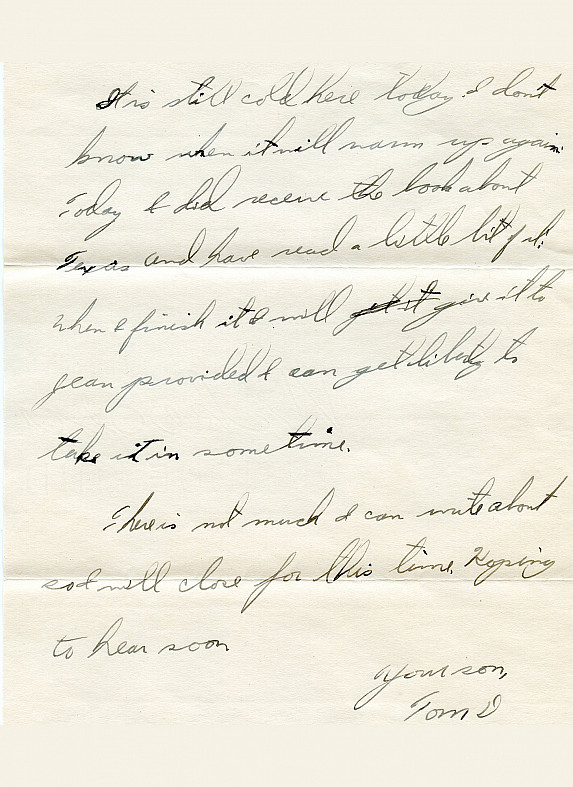 It is still cold here today. I don't
know when it will warm up again.
Today I did receive the book about
Texas and have read a little bit of it.
when I finish it I will get it give it to
jean provided I can get liberty to
take it in sometime.
There is not much I can write about
so I will close for this time. Hoping
to hear soon
Your son,
Tom D